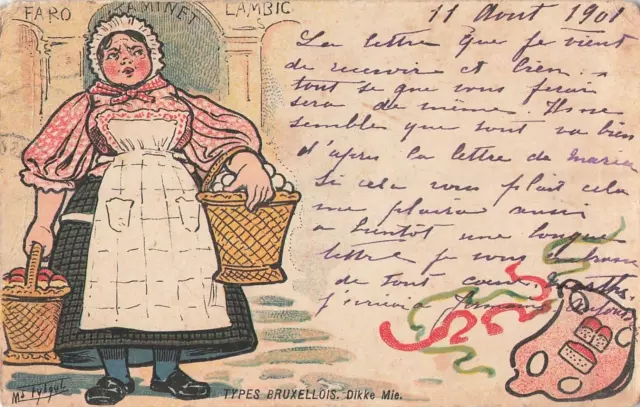 FARO CAMINET LAMBIC
11 Aout 1901
La lettre que je vient
de recevoire et bien.
tout se que vous ferai
sera de même.
semblee que tout va bien
d'apres la lettre de marie
Si cela vous plait cela
me plaira aussi
a bientot une longue
lettre je vous
de tout coeur
j'ecrirai
TYPES BRUXELLOIS. Dikke Mie.